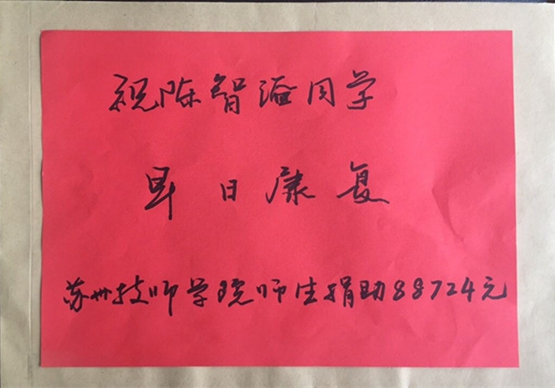 祝陈智溢同学
早日康复
苏州技师学院师生捐助88724元